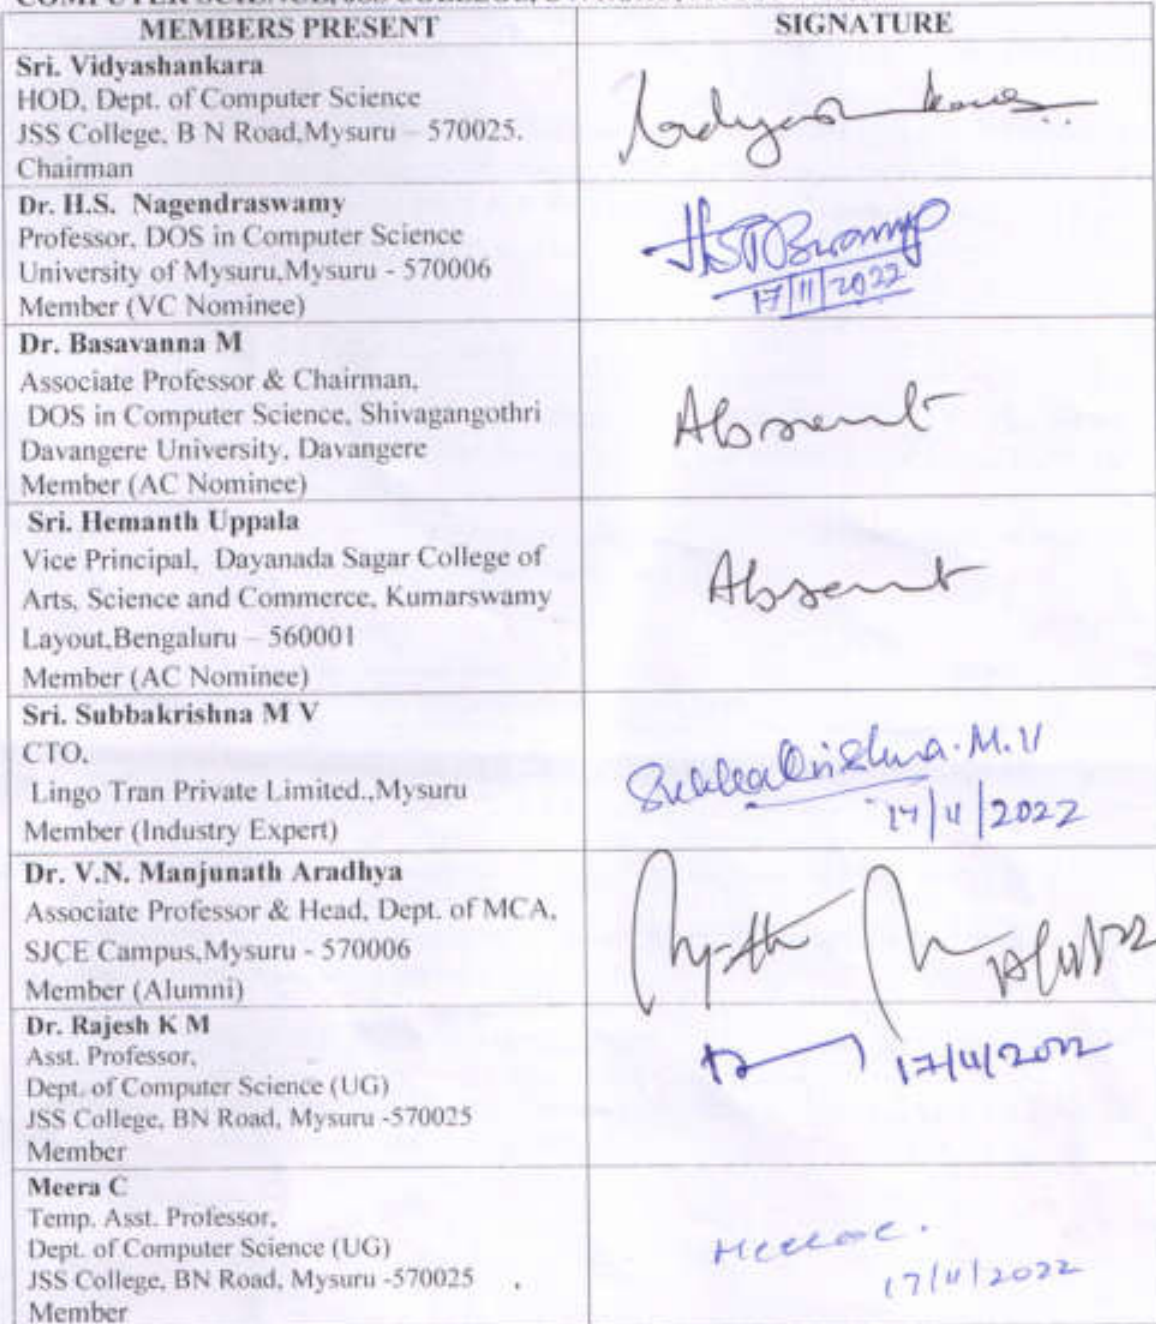 MEMBERS PRESENT
SIGNATURE
Sri. Vidyashankara
HOD, Dept. of Computer Science
JSS College, B N Road,Mysuru – 570025.
Chairman
Dr. H.S. Nagendraswamy
Professor, DOS in Computer Science
University of Mysuru,Mysuru - 570006
Member (VC Nominee)
17/11/2022
Dr. Basavanna M
Associate Professor & Chairman,
DOS in Computer Science, Shivagangothri
Davangere University, Davangere
Member (AC Nominee)
Absent
Sri. Hemanth Uppala
Vice Principal, Dayanada Sagar College of
Arts, Science and Commerce, Kumarswamy
Layout,Bengaluru – 560001
Member (AC Nominee)
Absent
Sri. Subbakrishna M V
CTO,
Lingo Tran Private Limited.,Mysuru
Member (Industry Expert)
Subbakrishna.M.V
17/11/2022
Dr. V.N. Manjunath Aradhya
Associate Professor & Head, Dept. of MCA,
SJCE Campus,Mysuru - 570006
Member (Alumni)
Dr. Rajesh K M
Asst. Professor,
Dept. of Computer Science (UG)
JSS College, BN Road, Mysuru -570025
Member
17/11/2022
Meera C
Temp. Asst. Professor,
Dept. of Computer Science (UG)
JSS College, BN Road, Mysuru -570025
Member
17/11/2022